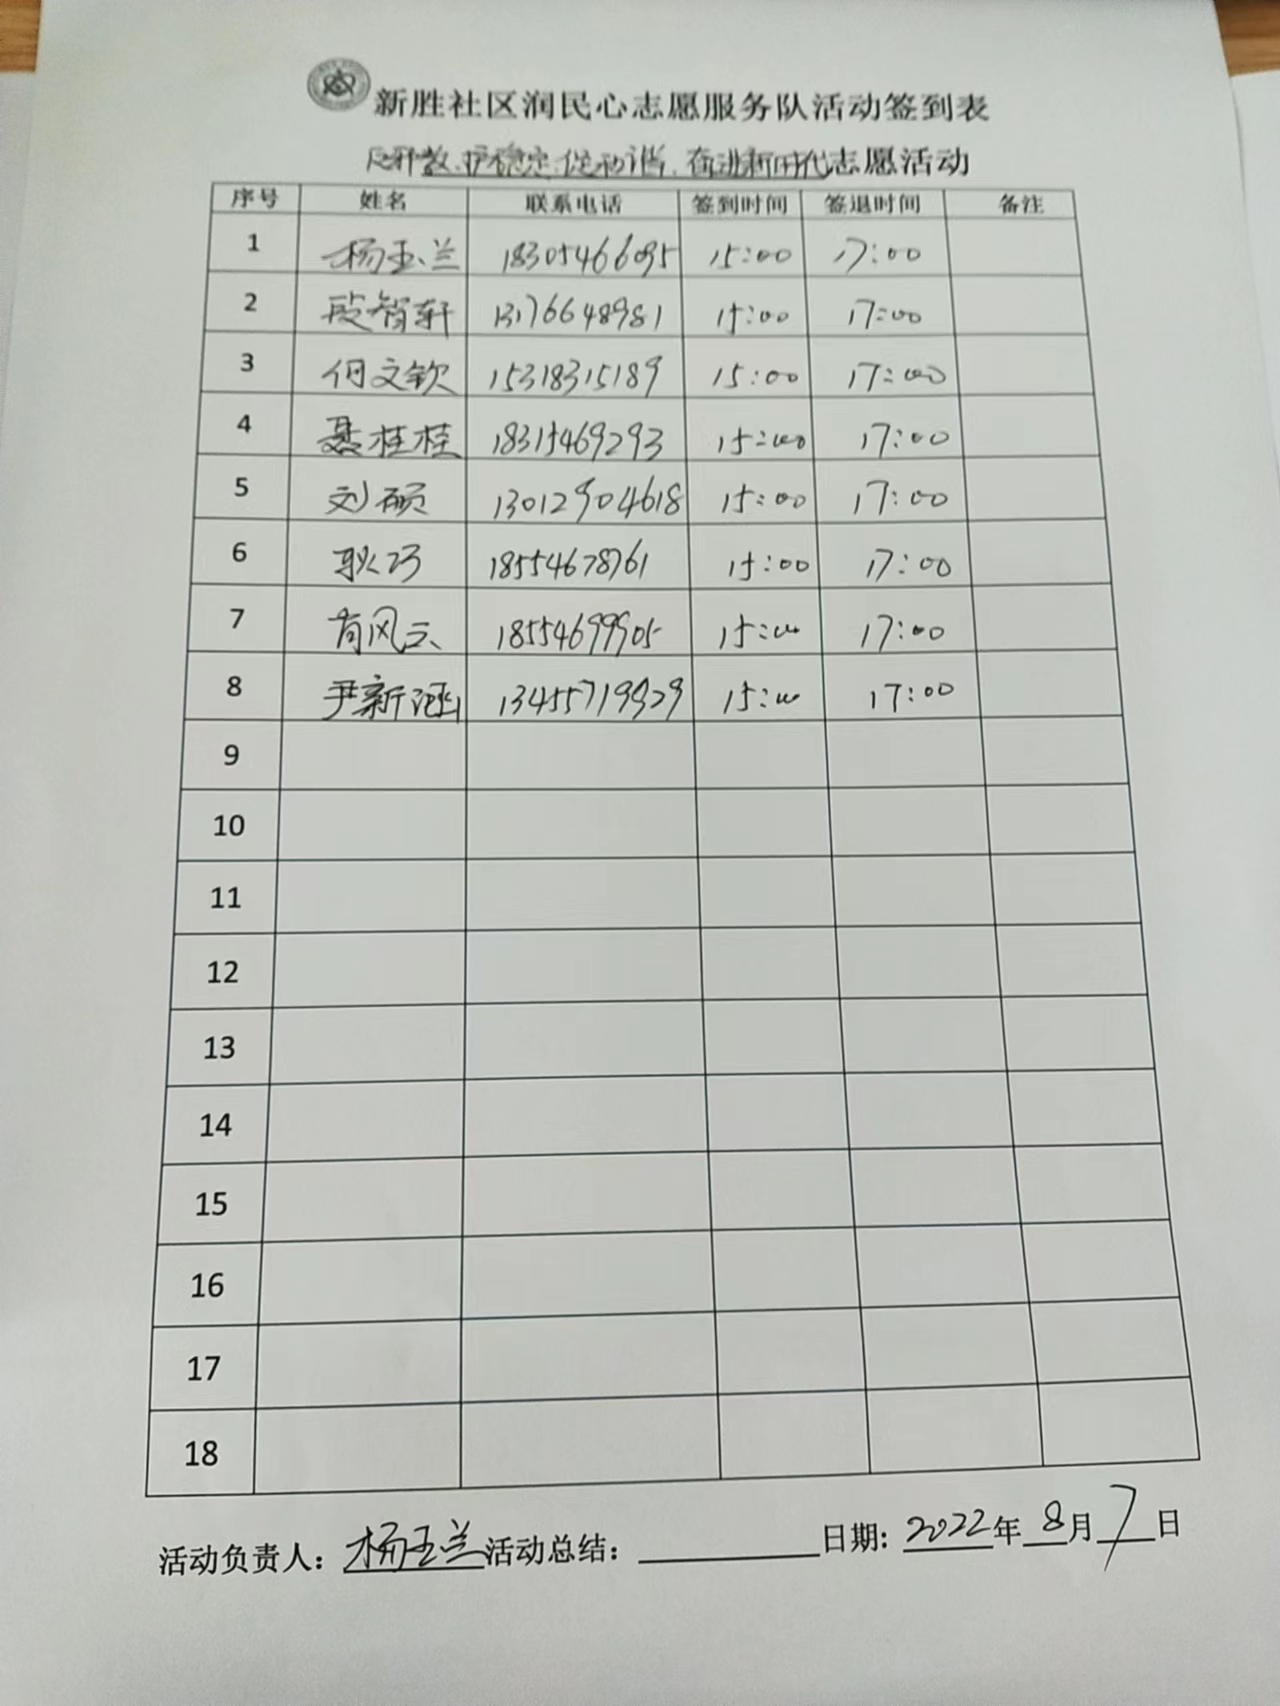 新胜社区润民心志愿服务队活动签到表
反邪教、护稳定、促和谐、奋进新时代志愿活动
序号 姓名 联系电话 签到时间 签退时间 备注
1 杨玉兰 18305466095 15:00 17:00
2 段智轩 13176648981 15:00 17:00
3 何文钦 15318315189 15:00 17:00
4 聂桂桂 18315469293 15:00 17:00
5 刘硕 13012904618 15:00 17:00
6 耿巧 18554678761 15:00 17:00
7 尚风云 18554699905 15:00 17:00
8 尹新涵 13455719929 15:00 17:00
9
10
11
12
13
14
15
16
17
18
活动负责人：杨玉兰 活动总结： 日期: 2022年8月7日